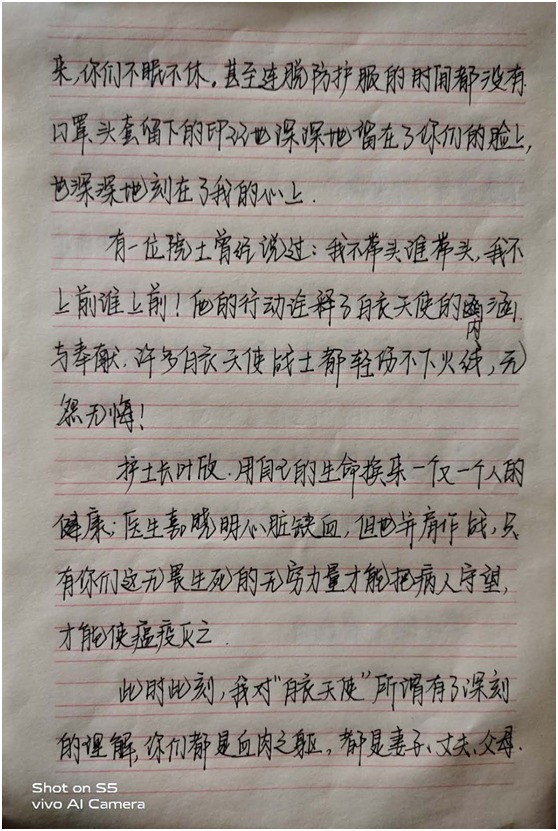 来,你们不眠不休。甚至连脱防护服的时间都没有
口罩、头套留下的印记地深深地留在了你们的脸上,
也深深地刻在了我的心上.
有一位院士曾经说过:我不带头谁带头,我不
上前谁上前!他的行动诠释了白衣天使的内涵
与奉献.许多白衣天使战士都轻伤不下火线,无
怨无悔!
护士长叶欣.用自己的生命换来一个又一个人的
健康;医生嘉晓明心脏缺血,但也并肩作战,只
有你们这无畏生死的无穷力量才能把病人守望,
才能使瘟疫灭亡.
此时此刻,我对“白衣天使”所谓有了深刻
的理解,你们都是血肉之躯,都是妻子、丈夫、父母.
Shot on S5
vivo AI Camera